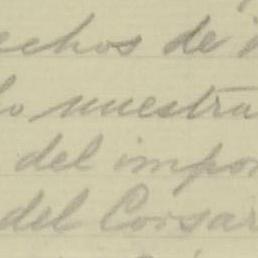 echos de
lo nuestra
del impor
del Corsar